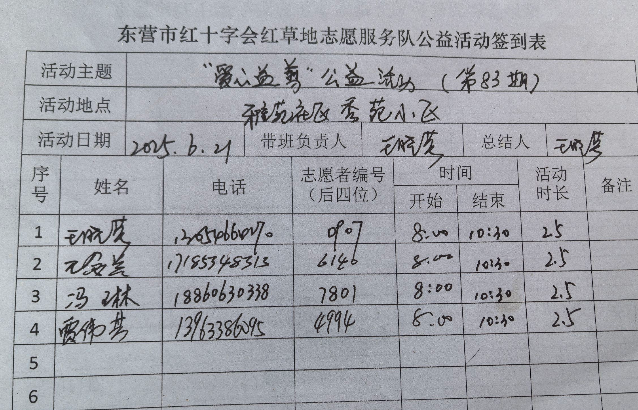 东营市红十字会红草地志愿服务队公益活动签到表
活动主题 "爱心益剪"公益活动（第83期）
活动地点 雅苑社区秀苑小区
活动日期 2025.6.21 带班负责人 王晓英 总结人 王晓英
序号 姓名 电话 志愿者编号（后四位） 时间 开始 结束 活动时长 备注
1 王晓英 0907 8:00 10:30 2.5
2 17185348313 6140 8:00 10:30 2.5
3 冯林 18860630338 7801 8:00 10:30 2.5
4 贾伟英 13963386095 4994 8:00 10:30 2.5
5
6